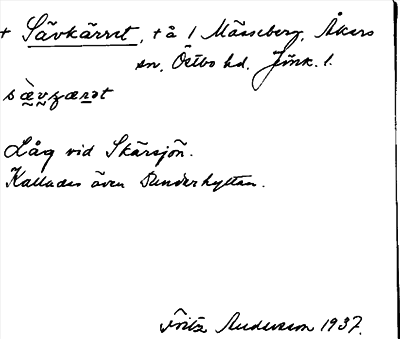 + Sävkärret, + å / Mässeberg, Åkers
sn, Östbo hd. Jönk. l.
sæ̀vɕærət
Låg vid Skärsjön.
Kallades även Sunderhyttan.
Fritz Andersson 1937.